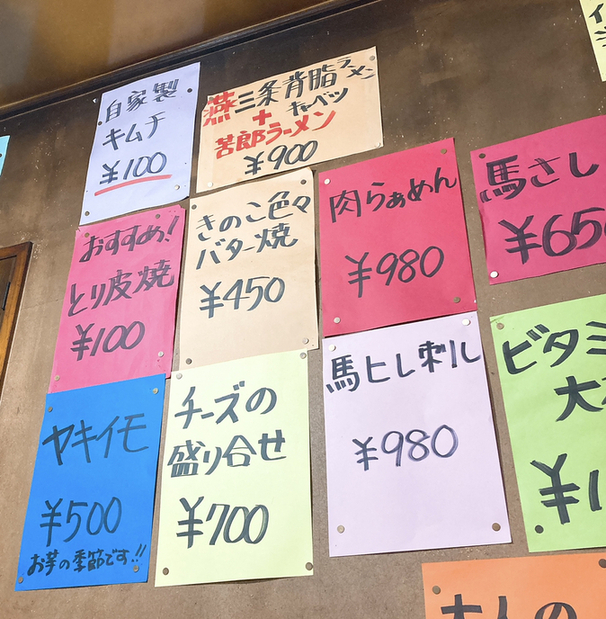 自家製
キムチ
¥100
燕三条背脂ラーメン
+キャベツ
苦郎ラーメン
¥900
おすすめ!
とり皮焼
¥100
きのこ色々
バター焼
¥450
肉らぁめん
¥980
馬さし
¥650
ヤキイモ
¥500
お芋の季節です!!
チーズの
盛り合せ
¥700
馬ヒレ刺し
¥980
ビタミ
大
¥1
大人の